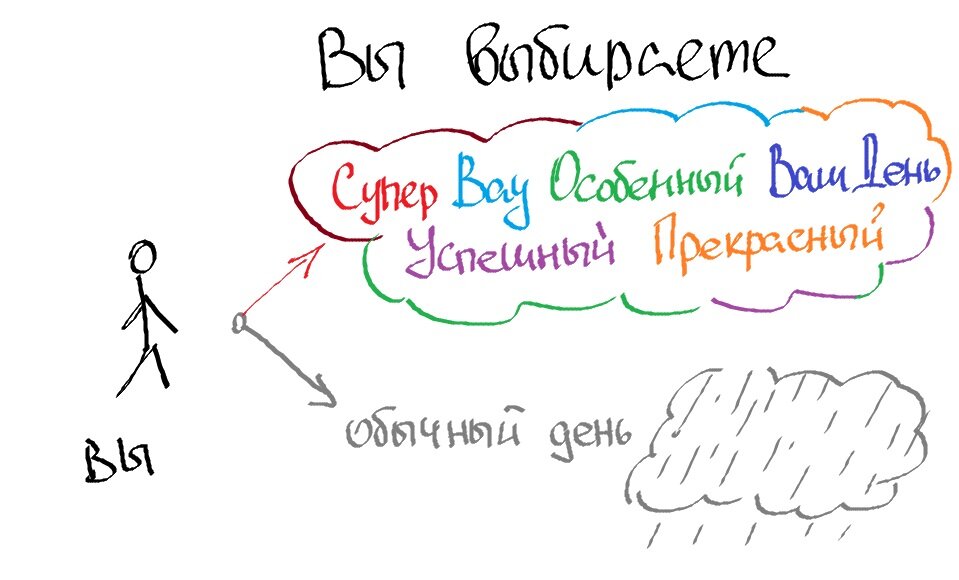 Вы выбираете
Супер Вау Особенный Ваш День
Успешный Прекрасный
обычный день
вы